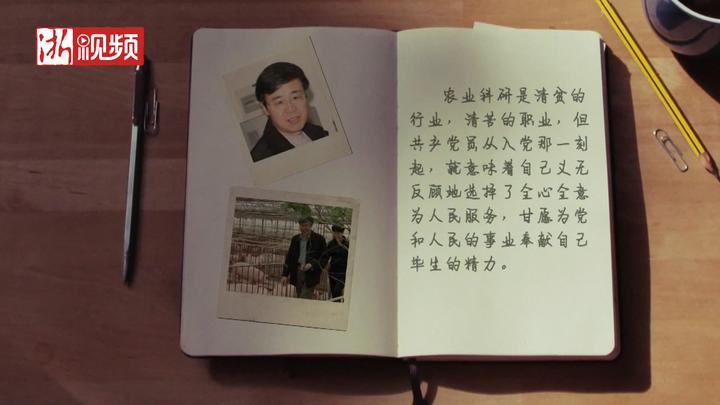 浙视频
农业科研是清贫的
行业，清苦的职业，但
共产党员从入党那一刻
起，就意味着自己义无
反顾地选择了全心全意
为人民服务，甘愿为党
和人民的事业奉献自己
毕生的精力。